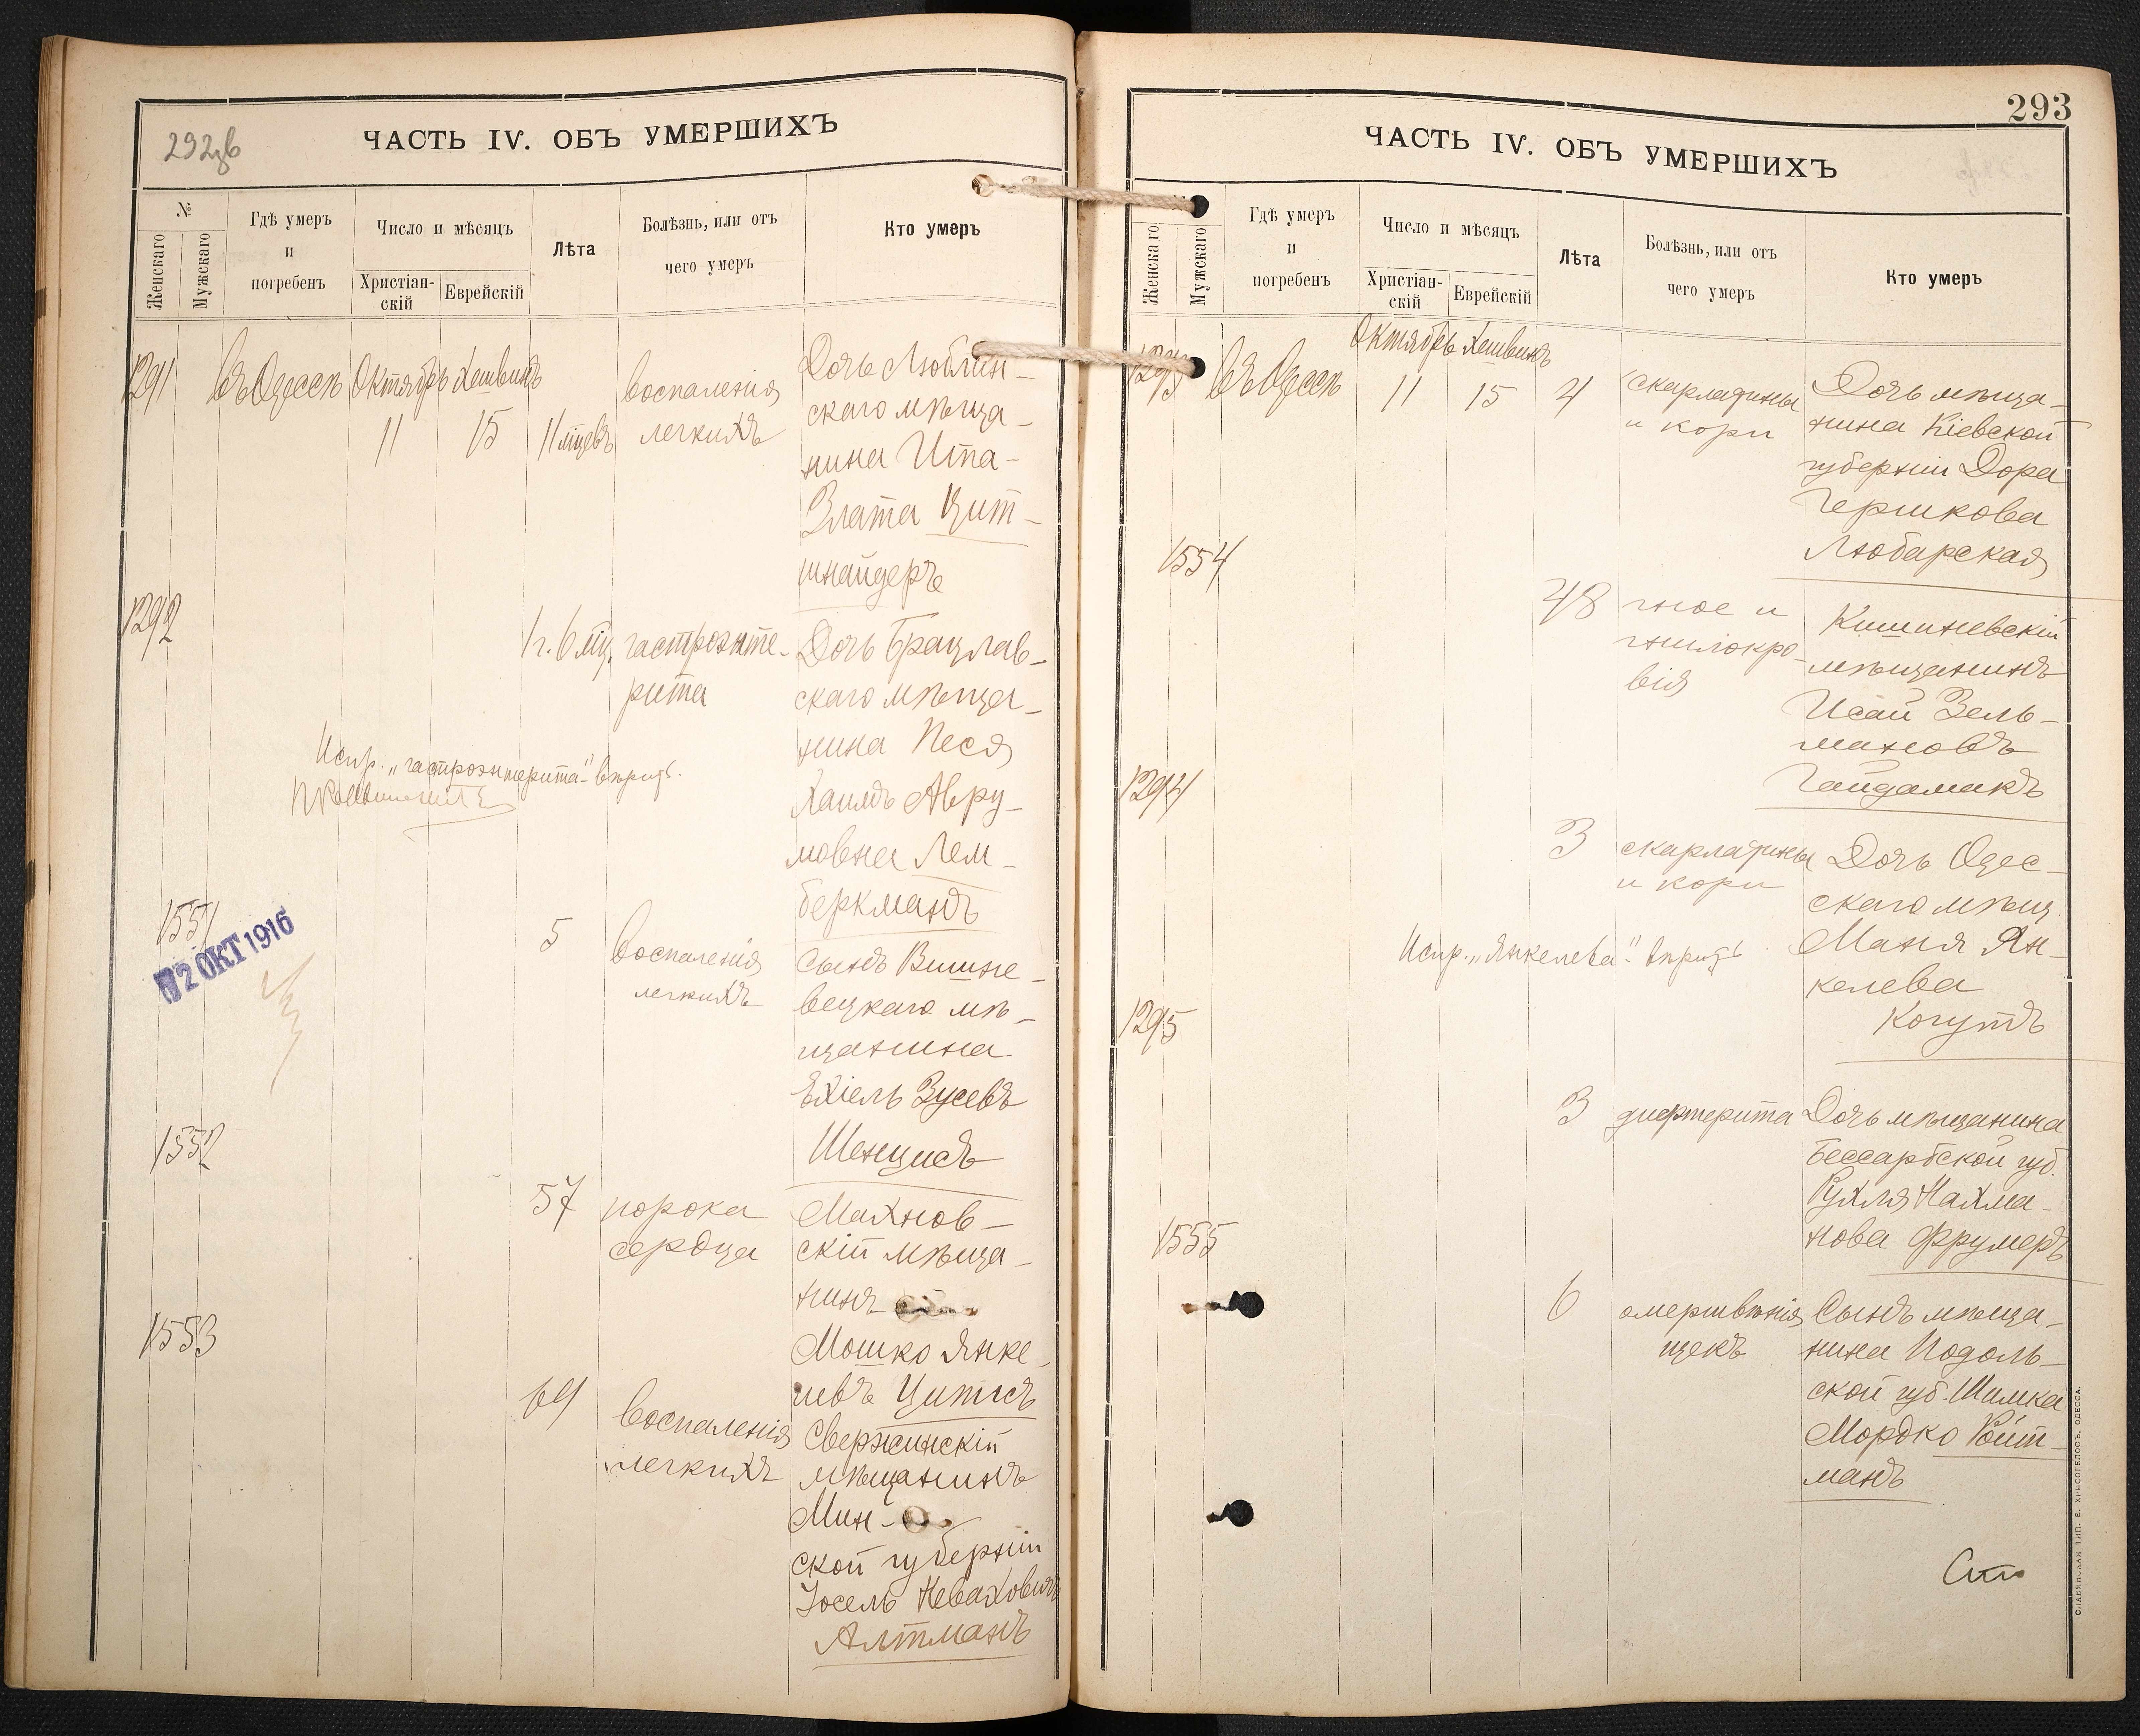 292об
ЧАСТЬ IV. ОБЪ УМЕРШИХЪ
№
Женскаго
Мужскаго
Гдѣ умеръ
и
погребенъ
Число и мѣсяцъ
Христіан-
скій
Еврейскій
Лѣта
Болѣзнь, или отъ
чего умеръ
Кто умеръ
1291
въ Одессѣ
Октябрь
Хешвинъ
11
15
11 мцевъ
воспаленія
легкихъ
Дочь Люблин-
скаго мѣща-
нина Ита-
Злата Цит-
шнайдеръ
1292
1 г. 6 мц.
гастроэнте-
рита
Дочь Брацлав-
скаго мѣща-
нина Песя
Хаимъ Авру-
мовна Лем-
беркманъ
Испр. „гастроэнтерита" вѣритъ.
1551
12 ОКТ 1916
5
воспаленія
легкихъ
Сынъ Вишне-
вецкаго мѣ-
щанина
Ехіель Зусевъ
Шенцисъ
1552
57
порока
сердца
Махнов-
скій мѣща-
нинъ
Мошко Янке-
левъ Цитисъ
1553
69
воспаленія
легкихъ
Свержинскій
мѣщанинъ
Мин-
ской губерніи
Іосель Неваховичъ
Алтманъ
293
ЧАСТЬ IV. ОБЪ УМЕРШИХЪ
Женскаго
Мужскаго
Гдѣ умеръ
и
погребенъ
Число и мѣсяцъ
Христіан-
скій
Еврейскій
Лѣта
Болѣзнь, или отъ
чего умеръ
Кто умеръ
1293
въ Одессѣ
Октябрь
Хешвинъ
11
15
4
скарлатины
и кори
Дочь мѣща-
нина Кіевской
губерніи Дора
Гершкова
Любарская
1554
48
гное и
гнилокро-
вія
Кишиневскій
мѣщанинъ
Исай Зель-
мановъ
Гайдамакъ
1294
3
скарлатины
и кори
Дочь Одес-
скаго мѣщ.
Маня Ян-
келева
Когутъ
Испр. „Янкелева" вѣритъ
1295
3
дифтерита
Дочь мѣщанина
Бессарбской губ.
Рухля Нахма-
нова Фрумеръ
1555
6
омертвѣнія
щекъ
Сынъ мѣща-
нина Подоль-
ской губ. Шимка
Мордко Ройт-
манъ
СЛАВЯНСКАЯ ТИП. Е. ХРИСОГЕЛОСЪ, ОДЕССА.